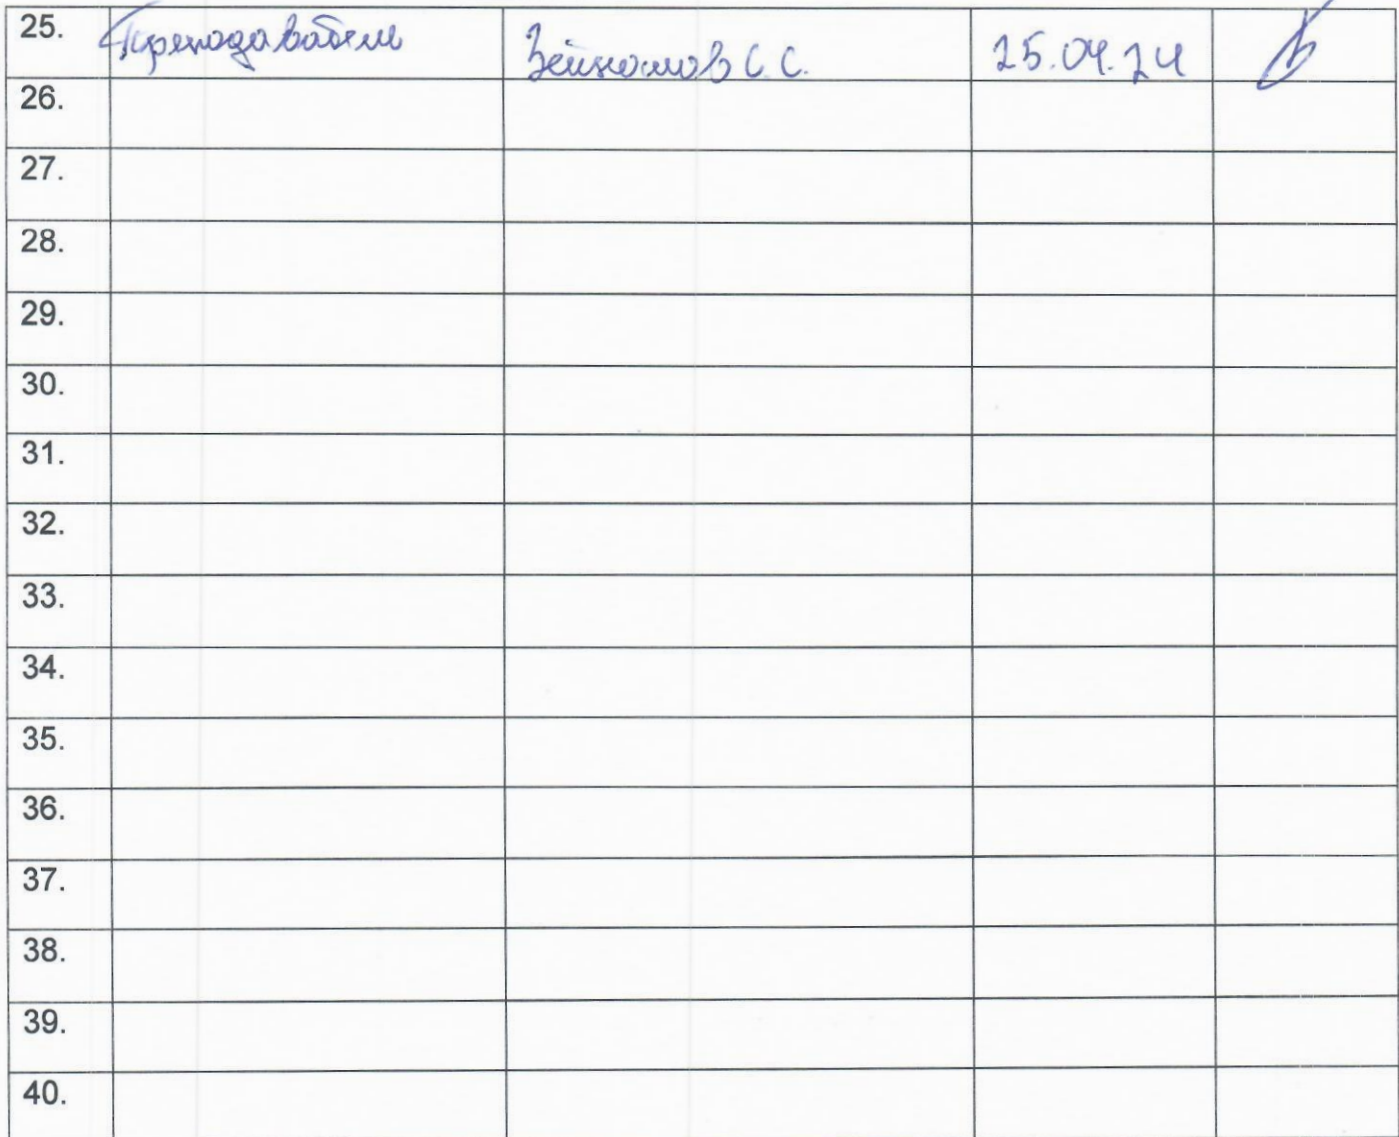 25. Преподаватель С.С. 25.04.24
26.
27.
28.
29.
30.
31.
32.
33.
34.
35.
36.
37.
38.
39.
40.